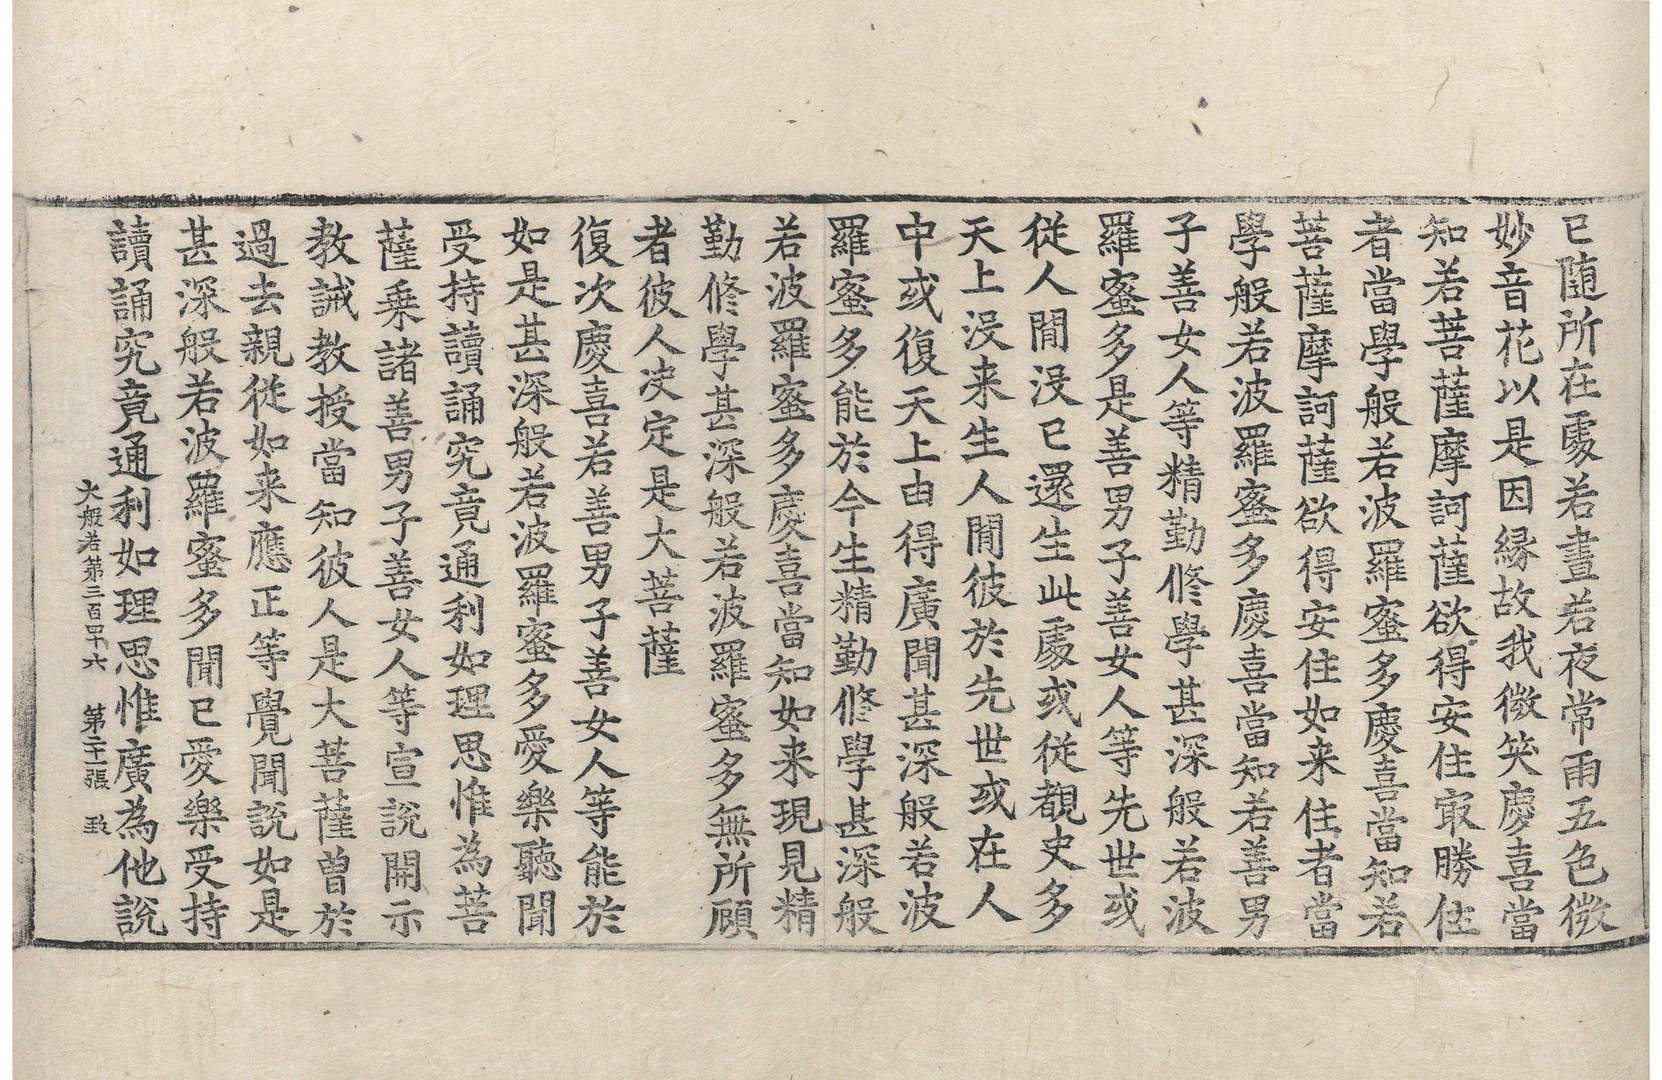 已随所在處若晝若夜常雨五色微
妙音花以是因縁故我微笑慶喜當
知若菩薩摩訶薩欲得安住㝡勝住
者當學般若波羅蜜多慶喜當知若
菩薩摩訶薩欲得安住如来住者當
學般若波羅蜜多慶喜當知若善男
子善女人等精勤修學甚深般若波
羅蜜多是善男子善女人等先世或
從人間没已還生此處或從覩史多
天上没来生人間彼於先世或在人
中或復天上由得廣聞甚深般若波
羅蜜多能於今生精勤修學甚深般
若波羅蜜多慶喜當知如来現見精
勤修學甚深般若波羅蜜多無所顧
者彼人决定是大菩薩
復次慶喜若善男子善女人等能於
如是甚深般若波羅蜜多愛樂聽聞
受持讀誦究竟通利如理思惟為菩
薩乗諸善男子善女人等宣説開示
教誡教授當知彼人是大菩薩曽於
過去親從如来應正等覺聞説如是
甚深般若波羅蜜多聞已愛樂受持
讀誦究竟通利如理思惟廣為他説
大般若第三百四十六 第二十一張 致